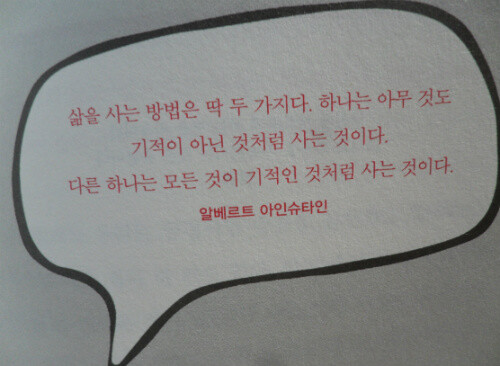 삶을 사는 방법은 딱 두 가지다. 하나는 아무 것도
기적이 아닌 것처럼 사는 것이다.
다른 하나는 모든 것이 기적인 것처럼 사는 것이다.
알베르트 아인슈타인